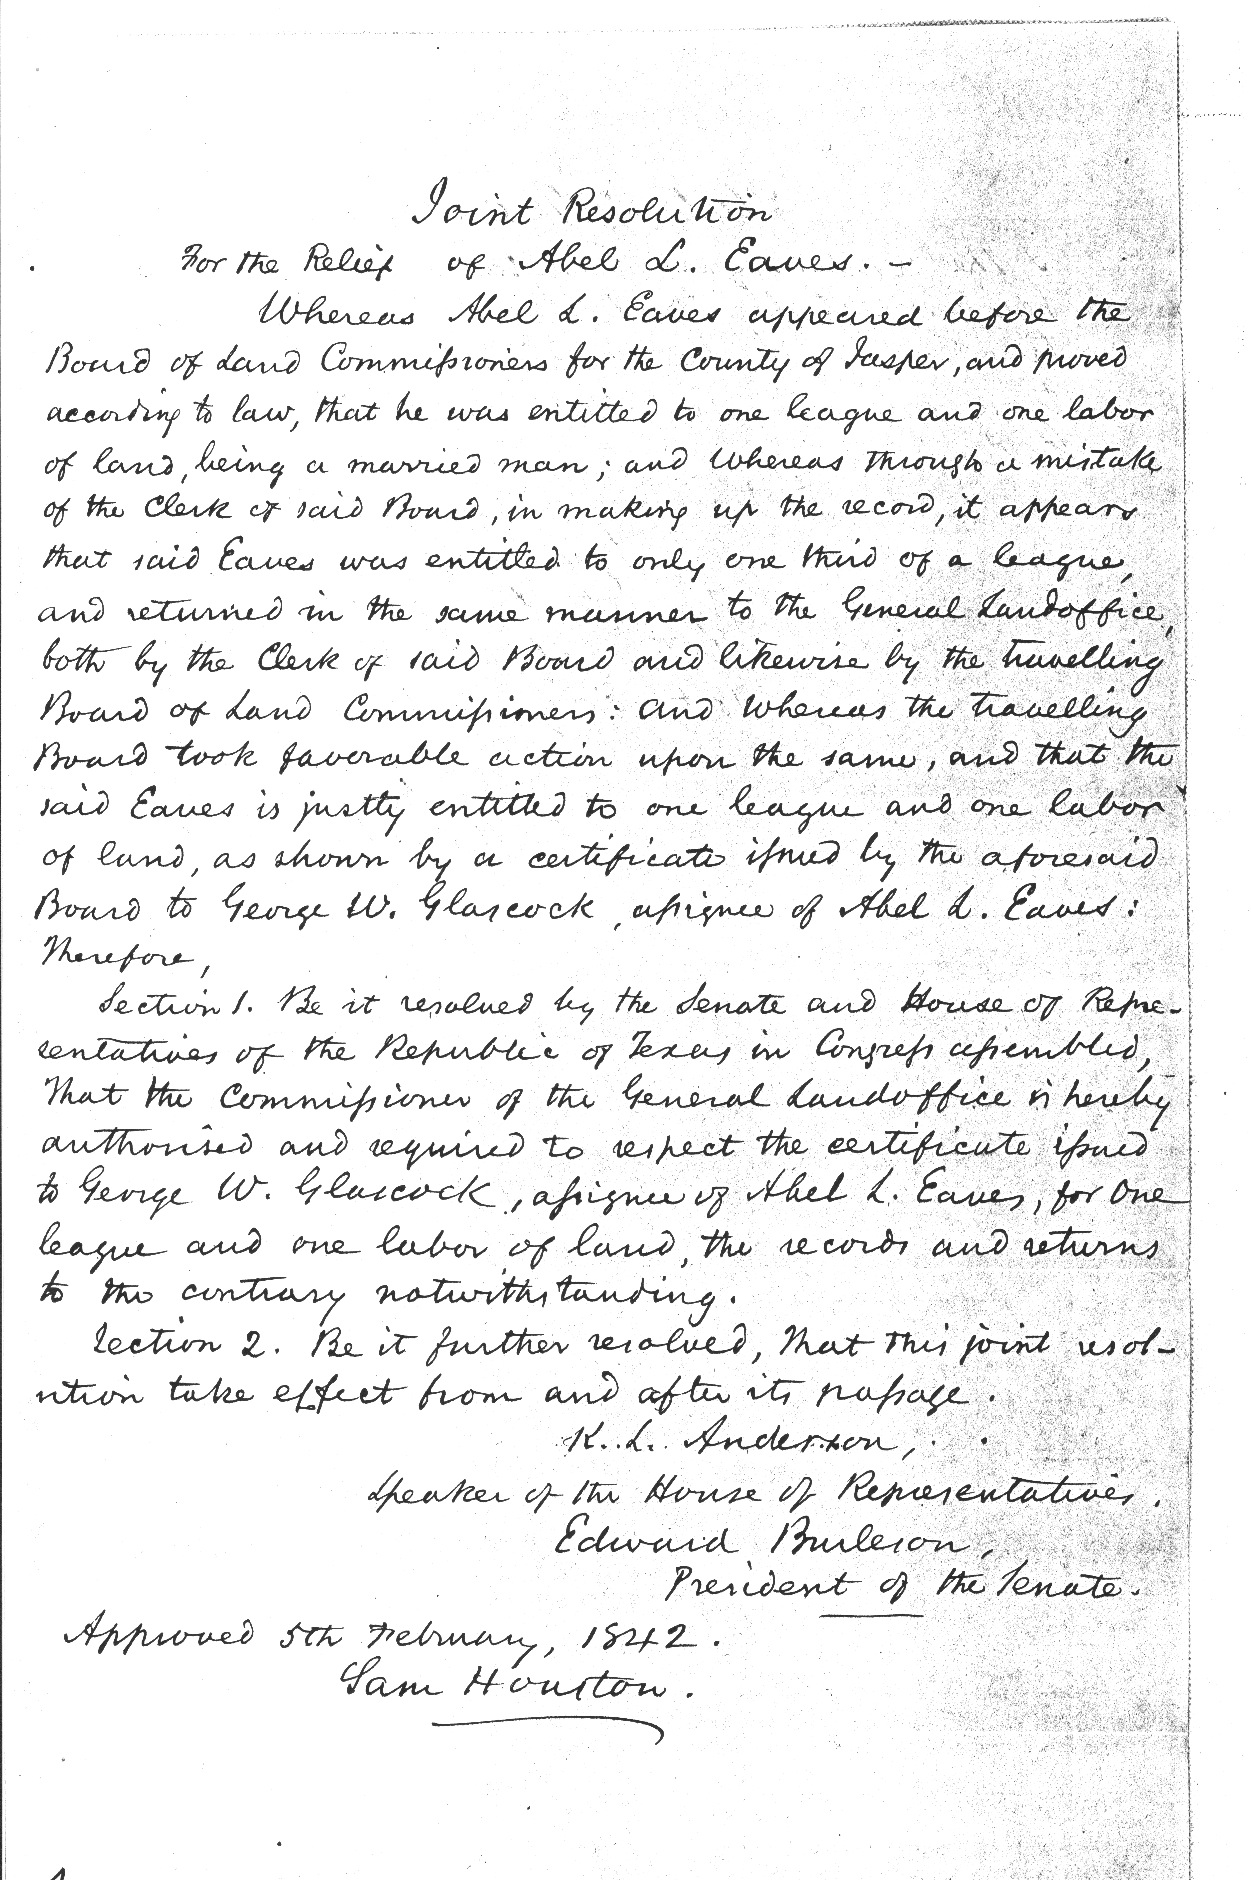 Joint Resolution
For the Relief of Abel L. Eaves. –
Whereas Abel L. Eaves appeared before the
Board of Land Commissioners for the County of Jasper, and proved
according to law, that he was entitled to one league and one labor
of land, being a married man; and whereas through a mistake
of the Clerk of said Board, in making up the record, it appears
that said Eaves was entitled to only one third of a league,
and returned in the same manner to the General Landoffice,
both by the Clerk of said Board and likewise by the travelling
Board of Land Commissioners: and whereas the travelling
Board took favorable action upon the same, and that the
said Eaves is justly entitled to one league and one labor
of land, as shown by a certificate issued by the aforesaid
Board to George W. Glascock, assignee of Abel L. Eaves:
Therefore,
Section 1. Be it resolved by the Senate and House of Repre-
sentatives of the Republic of Texas in Congress assembled,
That the Commissioner of the General Landoffice is hereby
authorised and required to respect the certificate issued
to George W. Glascock, assignee of Abel L. Eaves, for one
league and one labor of land, the records and returns
to the contrary notwithstanding.
Section 2. Be it further resolved, That this joint resol-
ution take effect from and after its passage.
K. L. Anderson,
Speaker of the House of Representatives.
Edward Burleson,
President of the Senate.
Approved 5th February, 1842.
Sam Houston.